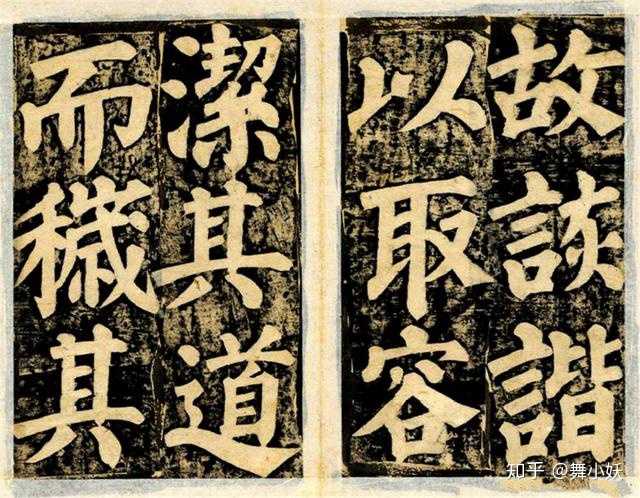 故詼諧
以取容
潔其道
而穢其
知乎 @舞小妖